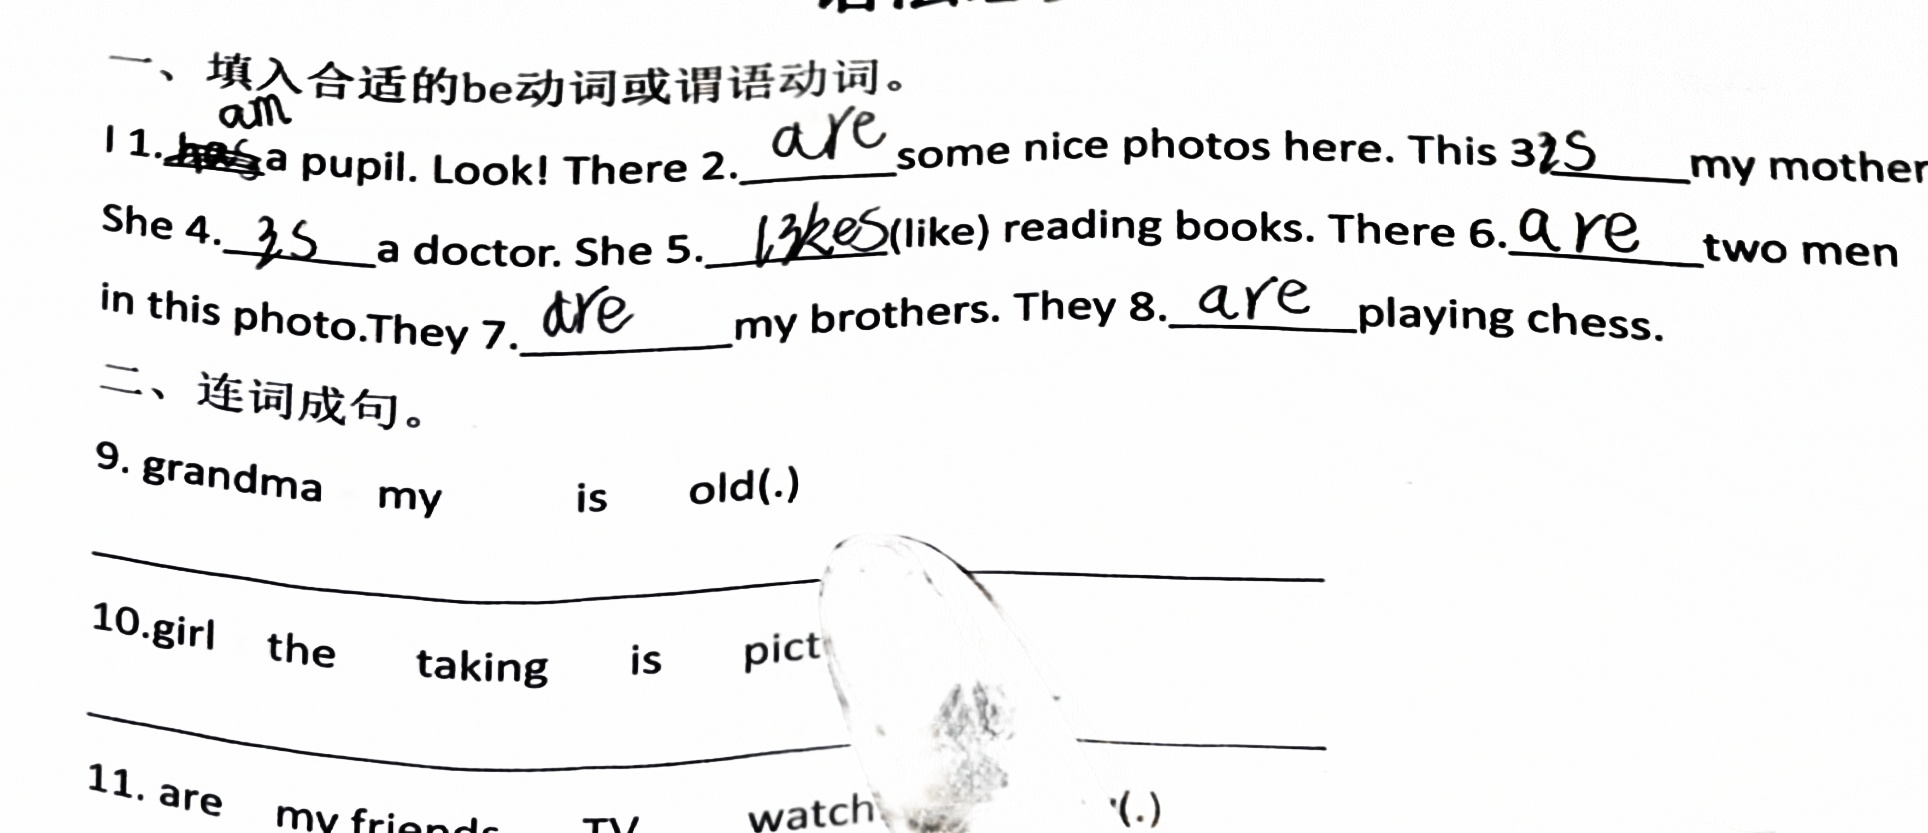 一、填入合适的be动词或谓语动词。
am
I 1.____a pupil. Look! There 2. are some nice photos here. This 3 is my mother
She 4. is a doctor. She 5. likes (like) reading books. There 6. are two men
in this photo.They 7. are my brothers. They 8. are playing chess.
二、连词成句。
9. grandma my is old(.)
10.girl the taking is
11. are my friends TV (.)